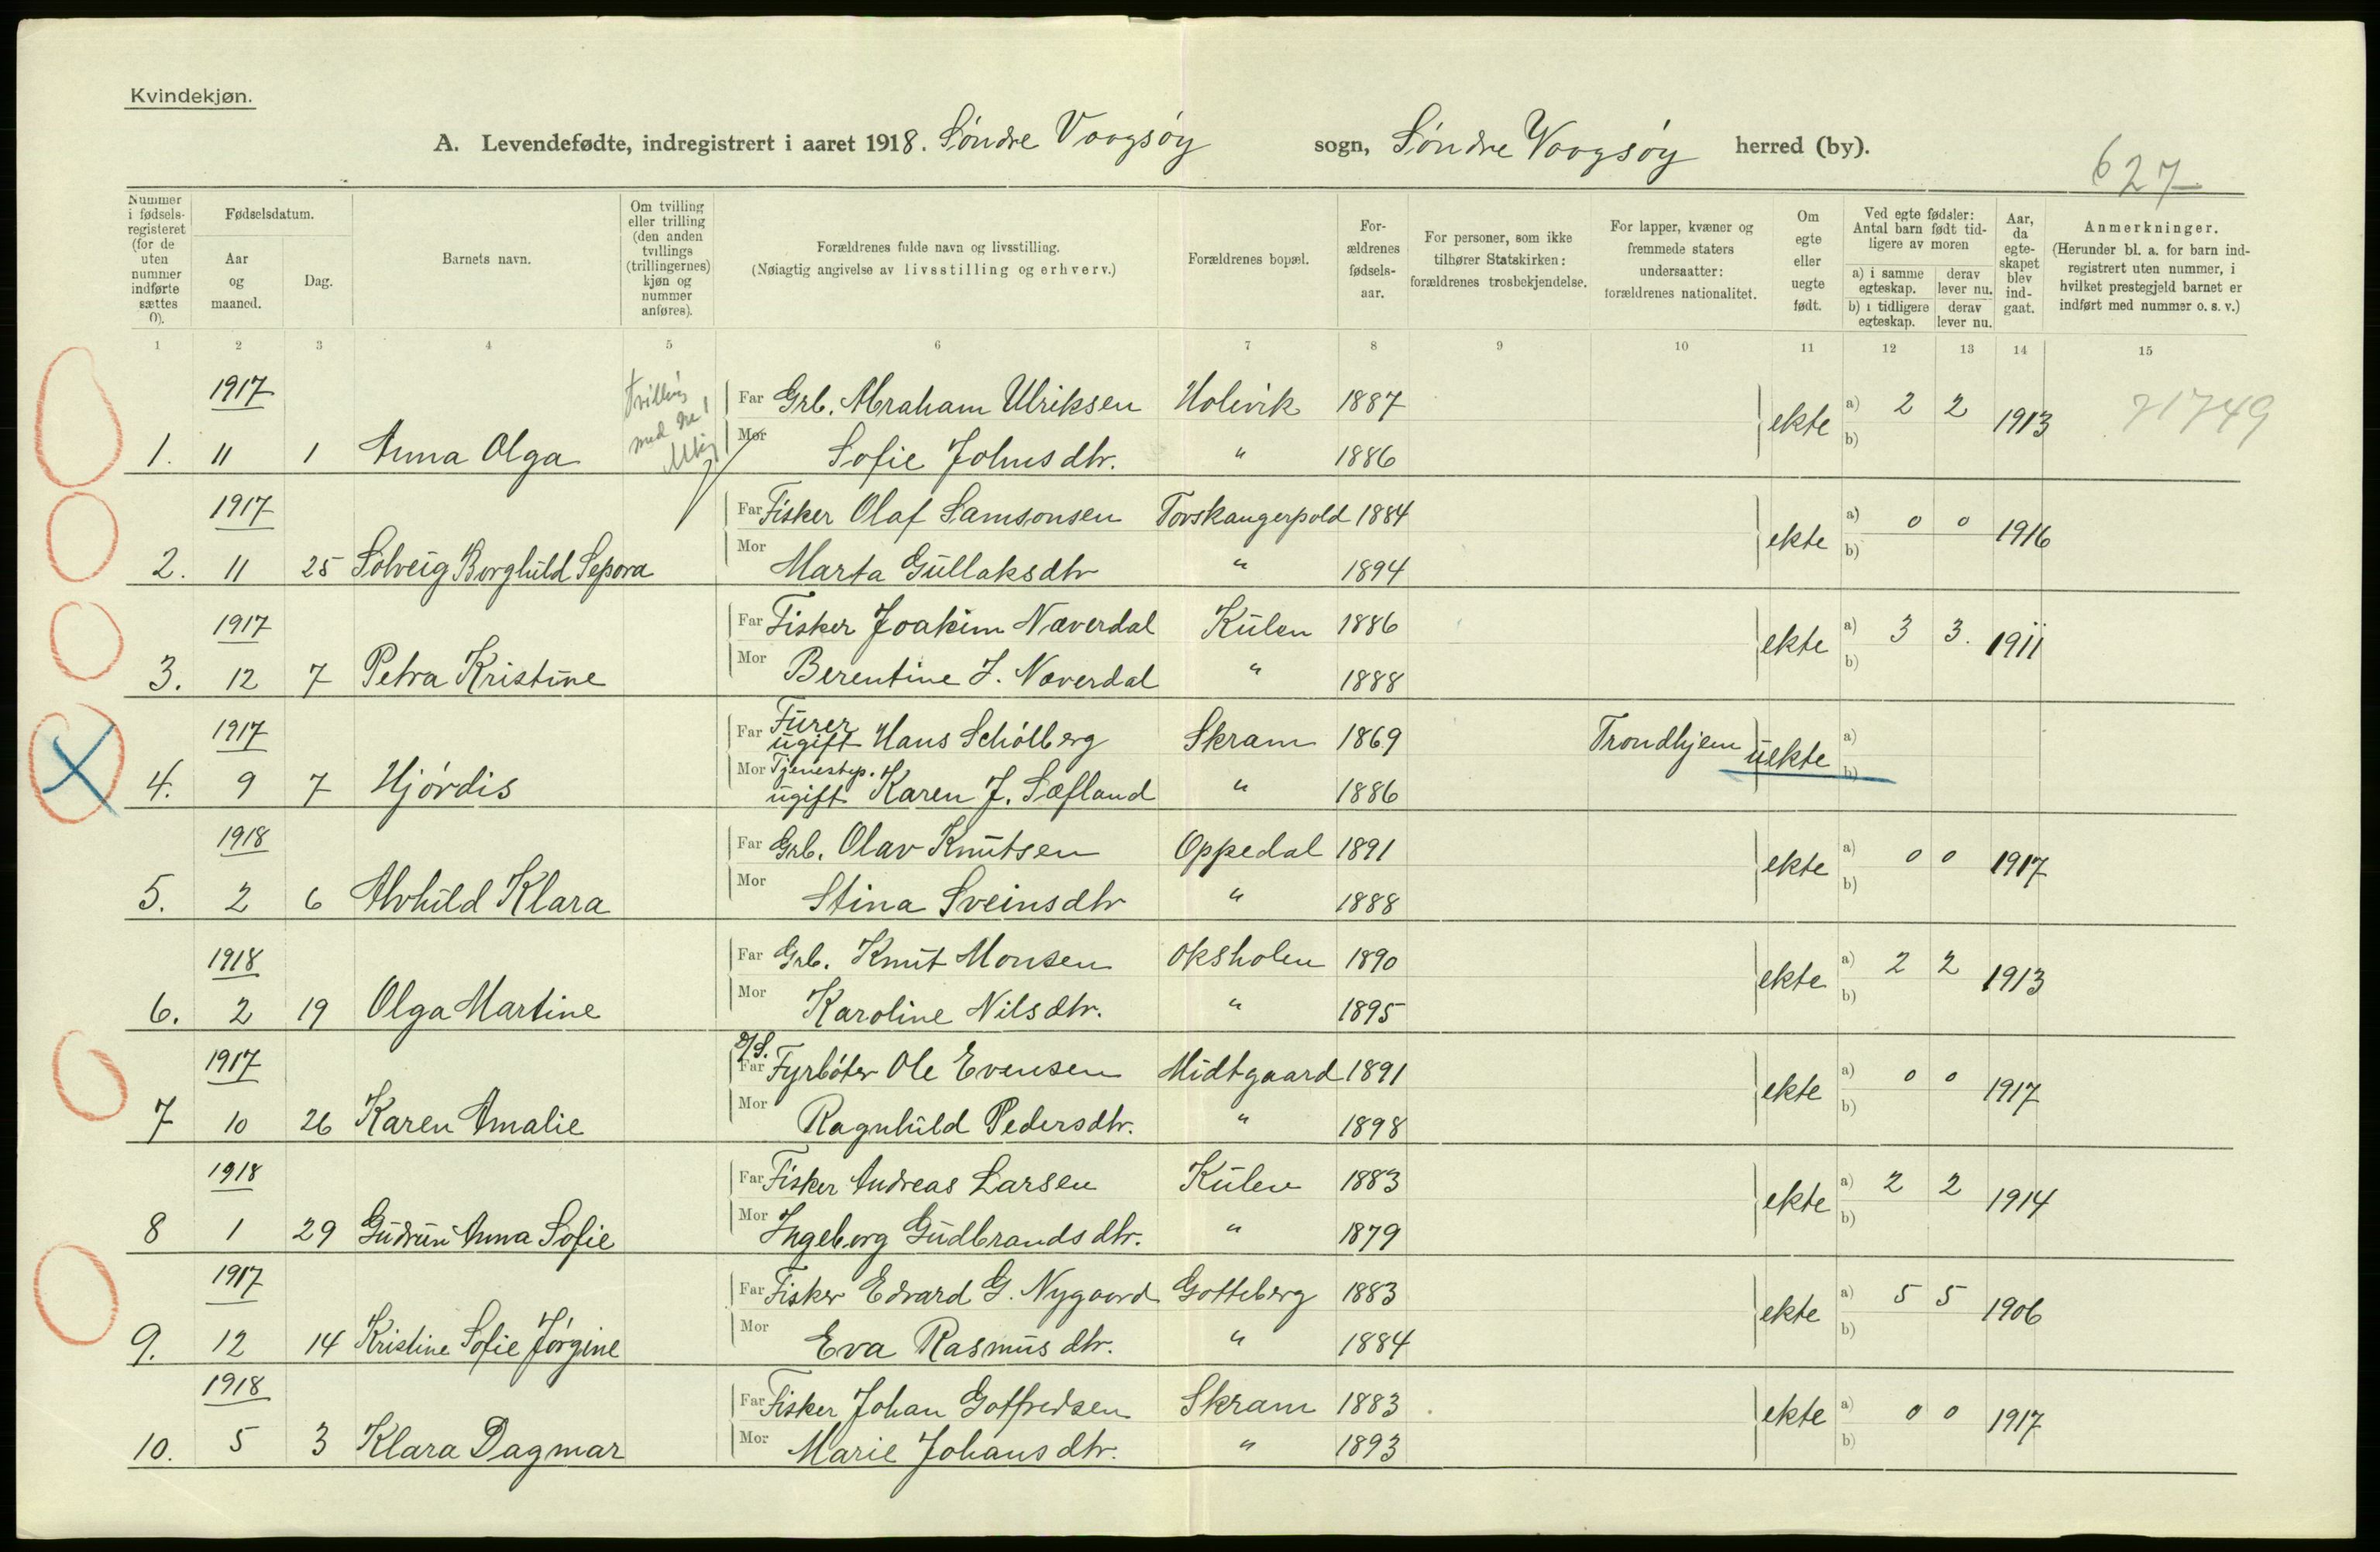 Kvindekjøn.
A. Levendefødte, indregistrert i aaret 1918. Søndre Vaagsøy sogn, Søndre Vaagsøy herred (by).
627
Nummer i fødsels-registeret (for de uten nummer indførte sættes 0).
Fødselsdatum.
Aar og maaned.
Dag.
Barnets navn.
Om tvilling eller trilling (den anden tvillings (trillingernes) kjøn og nummer anføres).
Forældrenes fulde navn og livsstilling.
(Nøiagtig angivelse av livsstilling og erhverv.)
Forældrenes bopæl.
For-ældrenes fødsels-aar.
For personer, som ikke tilhører Statskirken: forældrenes trosbekjendelse.
For lapper, kvæner og fremmede staters undersaatter: forældrenes nationalitet.
Om egte eller uegte født.
Ved egte fødsler: Antal barn født tid-ligere av moren
a) i samme egteskap.
derav lever nu.
b) i tidligere egteskap.
derav lever nu.
Aar, da egte-skapet blev ind-gaat.
Anmerkninger.
(Herunder bl. a. for barn ind-registrert uten nummer, i hvilket prestegjeld barnet er indført med nummer o. s. v.)
1 2 3 4 5 6 7 8 9 10 11 12 13 14 15
1917 Far Grb. Abraham Ulriksen Holevik 1887 ekte a) 2 2 1913 71749
1. 11 1 Anna Olga Tvilling med Mor Sofie Johnsdtr. " 1886 b)
1917 Far Fisker Olaf Samsonsen Torskangerpold 1884 ekte a) 0 0 1916
2. 11 25 Solveig Borghild Sepora Mor Marta Gullaksdtr " 1894 b)
1917 Far Fisker Joakim Næverdal Kulen 1886 ekte a) 3 3. 1911
3. 12 7 Petra Kristine Mor Berentine J. Næverdal " 1888 b)
1917 Far Fürer ugift Hans Schølberg Skram 1869 Trondhjem uekte a)
4. 9 7 Hjørdis Mor Tjenestep. ugift Karen J. Sæfland " 1886 b)
1918 Far Grb. Olav Knutsen Oppedal 1891 ekte a) 0 0 1917
5. 2 6 Alvhild Klara Mor Stina Sveinsdtr " 1888 b)
1918 Far Grb. Knut Monsen Oksholen 1890 ekte a) 2 2 1913
6. 2 19 Olga Martine Mor Karoline Nilsdtr. " 1895 b)
1917 Far D/S. Fyrbøter Ole Evensen Midtgaard 1891 ekte a) 0 0 1917
7 10 26 Karen Amalie Mor Ragnhild Pedersdtr. " 1898 b)
1918 Far Fisker Andreas Larsen Kulen 1883 ekte a) 2 2 1914
8 1 29 Gudrun Anna Sofie Mor Ingeborg Gudbrandsdtr. " 1879 b)
1917 Far Fisker Edvard G. Nygaard Gotteberg 1883 ekte a) 5 5 1906
9. 12 14 Kristine Sofie Jørgine Mor Eva Rasmusdtr. " 1884 b)
1918 Far Fisker Johan Gotfredsen Skram 1883 ekte a) 0 0 1917
10. 5 3 Klara Dagmar Mor Marie Johansdtr. " 1893 b)